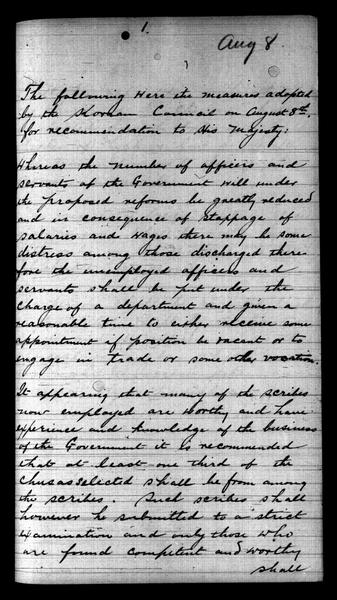 1.
Aug 8
The following were the measures adopted
by the Korean Council on August 8th.
for recommendation to His Majesty:
Whereas the number of officers and
servants of the Government will under
the proposed reforms be greatly reduced
and in consequence of stoppage of
salaries and wages there may be some
distress among those discharged there-
fore the unemployed officers and
servants shall be put under the
charge of a department and given a
reasonable time to either receive some
appointment if position be vacant or to
engage in trade or some other vocation.
It appearing that many of the scribes
now employed are worthy and have
experience and knowledge of the business
of the Government it is recommended
that at least one third of the
Chusas selected shall be from among
the scribes. Such scribes shall
however be submitted to a strict
examination and only those who
are found competent and worthy
shall